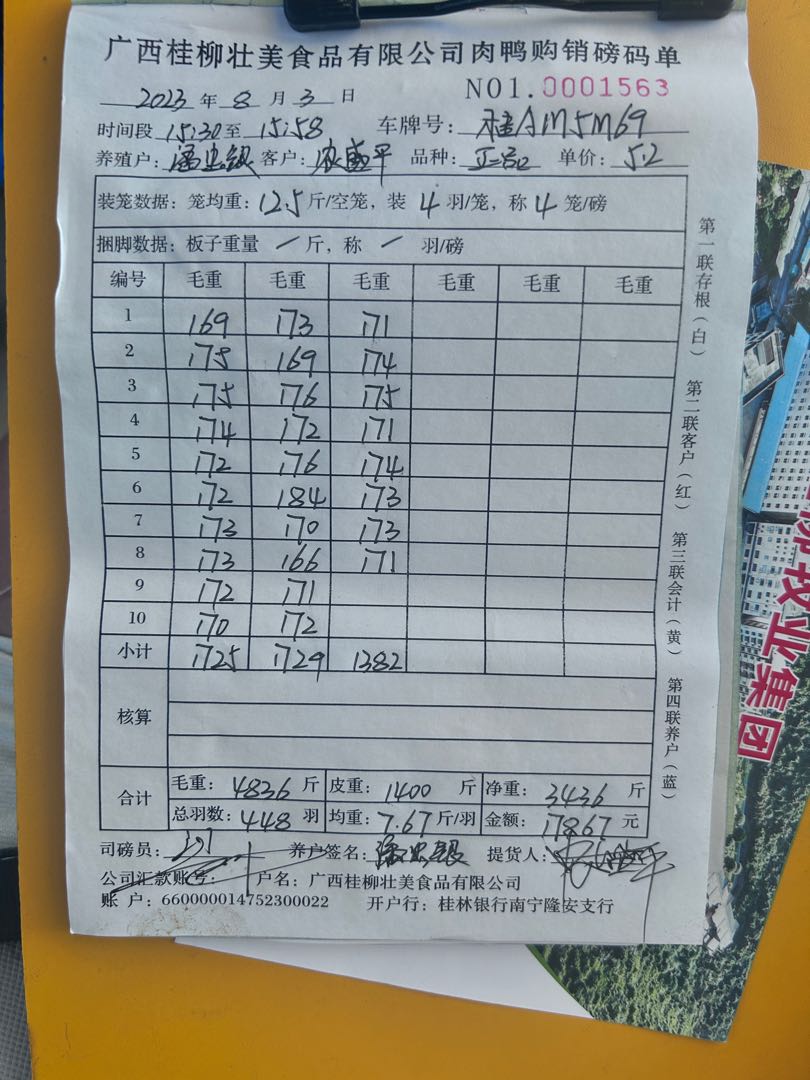 广西桂柳壮美食品有限公司肉鸭购销磅码单
NO1.0001563
2023年8月3日
时间段 15:30至 15:58 车牌号: 桂AM5M69
养殖户: 潘忠银 客户: 农盛平 品种: 单价: 5.2
装笼数据: 笼均重: 12.5斤/空笼, 装 4 羽/笼, 称 4 笼/磅
捆脚数据: 板子重量 / 斤, 称 / 羽/磅
编号 毛重 毛重 毛重 毛重 毛重 毛重
1 169 173 171
2 175 169 174
3 175 176 175
4 174 172 171
5 172 176 174
6 172 184 173
7 173 170 173
8 173 166 171
9 172 171
10 170 172
小计 1725 1729 1382
核算
合计 毛重: 4836 斤 皮重: 1400 斤 净重: 3436 斤
总羽数: 448 羽 均重: 7.67斤/羽 金额: 17867 元
司磅员: 养户签名: 潘忠银 提货人:
公司汇款账号: 户名: 广西桂柳壮美食品有限公司
账 户: 660000014752300022 开户行: 桂林银行南宁隆安支行
第一联存根(白) 第二联客户(红) 第三联会计(黄) 第四联养户(蓝)
牧业集团